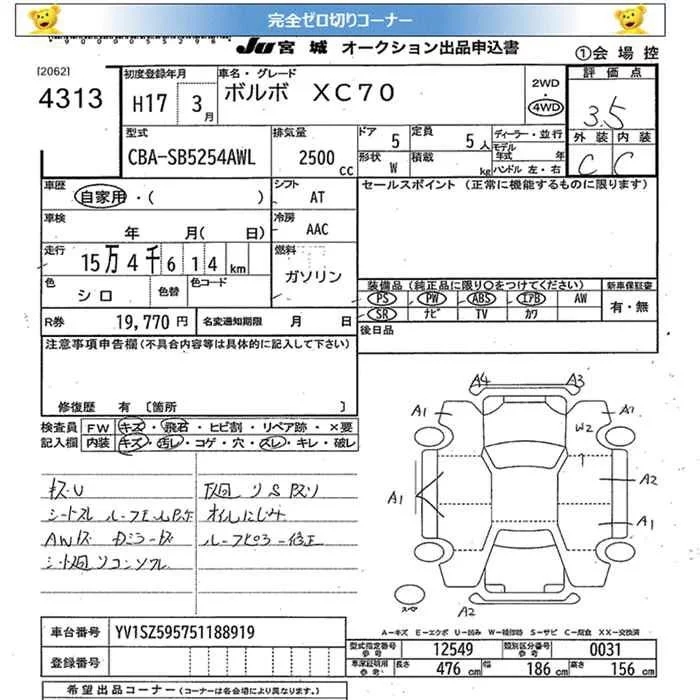 完全ゼロ切りコーナー
JU 宮城 オークション出品申込書
①会場控
[2062]
4313
初度登録年月
H17 3月
車名・グレード
ボルボ XC70
2WD
・
4WD
評価点
3.5
型式
CBA-SB5254AWL
排気量
2500 cc
ドア 5
定員 5人
形状 W
積載 kg
ディーラー・並行
モデル年式 年
ハンドル 左・右
外装 内装
C C
車歴
自家用・( )
シフト AT
セールスポイント (正常に機能するものに限ります)
車検
年 月( 日)
冷房 AAC
走行
15万4千614km
燃料 ガソリン
色 シロ
色替
色コード
装備品(純正品に限り○をつけてください)
新車保証書
PS PW ABS エアB AW
SR ナビ TV カワ
有・無
R券 19,770円
名変通知期限 月 日
後日品
注意事項申告欄(不具合内容等は具体的に記入して下さい)
修復歴 有 〔箇所 〕
検査員記入欄
FW キズ・飛石・ヒビ割・リペア跡・×要
内装 キズ・汚レ・コゲ・穴・スレ・キレ・破レ
シートスレ
オイルにじみ
AWキズ
A4 A3
A1 A1
W2
A1 A2
A1
A2
スペア
A-キズ E-エクボ U-凹み W-補修跡 S-サビ C-腐食 XX-交換済
車台番号 YV1SZ595751188919
登録番号
型式指定番号 参考 12549
類別区分番号 参考 0031
車庫証明用 参考 長さ 476cm 幅 186cm 高さ 156cm
希望出品コーナー(コーナーは各会場により異なります。)